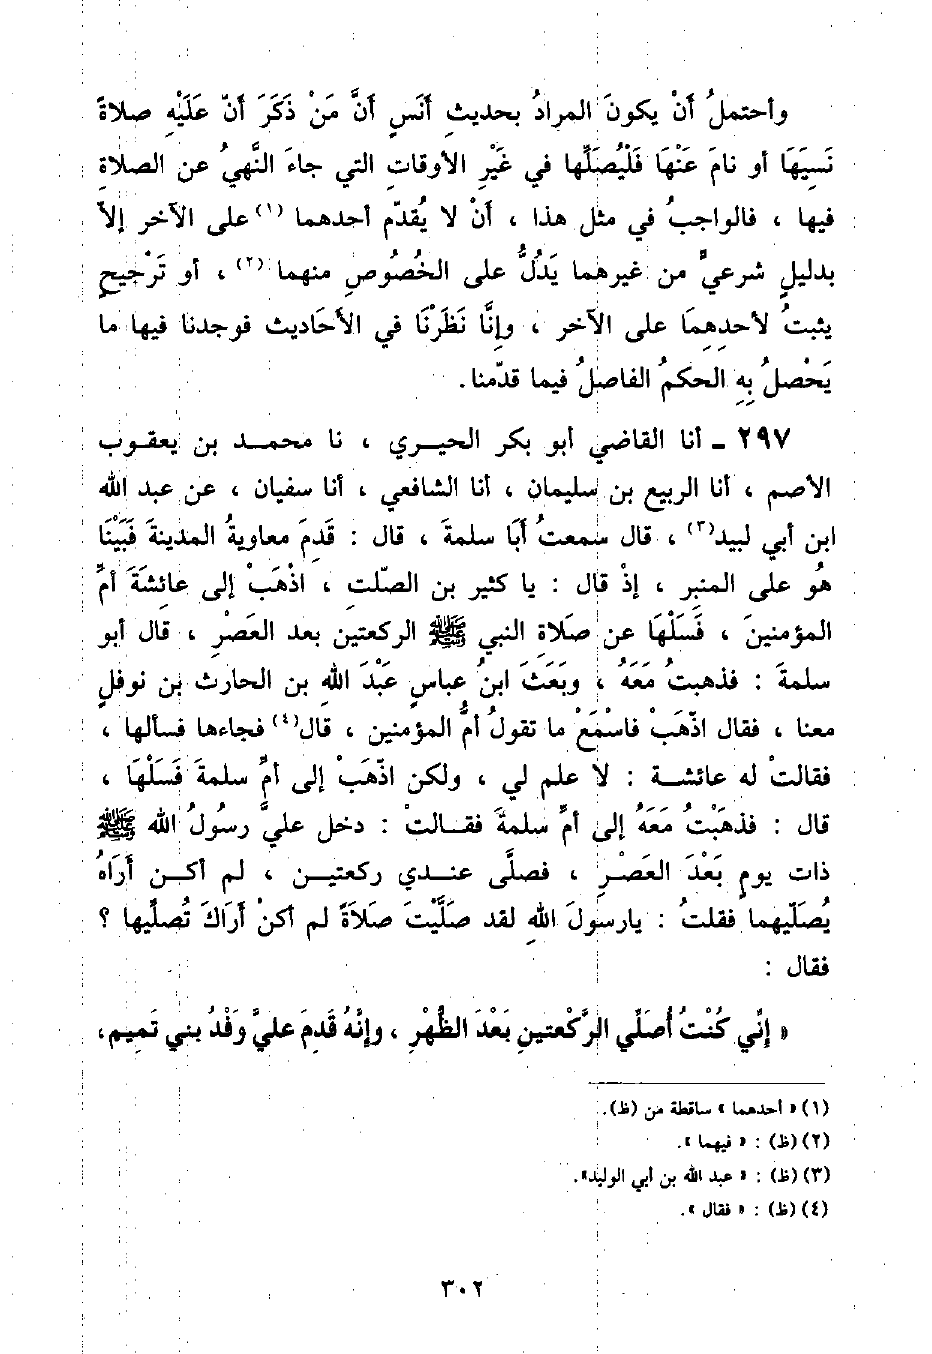 وأحتملُ أنْ يكونَ المرادُ بحديثِ أنَسٍ أنَّ مَنْ ذَكَرَ أنّ عَلَيْهِ صلاةً
نَسِيَهَا أو نامَ عَنْهَا فَلْيُصَلِّها في غَيْرِ الأوقاتِ التي جاءَ النَّهيُ عن الصلاةِ
فيها ، فالواجبُ في مثل هذا ، أنْ لا يُقدّم أحدهما (١) على الآخر إلاّ
بدليلٍ شرعيٍّ من غيرهما يَدُلُّ على الخُصُوصِ منهما (٢) ، أو تَرْجيحٍ
يثبتُ لأحدِهِمَا على الآخر ، وإنَّا نَظَرْنَا في الأحَاديث فوجدنا فيها ما
يَحْصلُ بِهِ الحكمُ الفاصلُ فيما قدّمنا.
٢٩٧ ـ أنا القاضي أبو بكر الحيـري ، نا محمـد بن يعقـوب
الأصم ، أنا الربيع بن سليمان ، أنا الشافعي ، أنا سفيان ، عن عبد الله
ابن أبي لبيد(٣) ، قال سمعتُ أبَا سلمةَ ، قال : قَدِمَ معاويةُ المدينةَ فَبَيْنَا
هُو على المنبر ، إذْ قال : يا كثير بن الصّلتِ ، اذْهَبْ إلى عائشَةَ أمِّ
المؤمنينَ ، فَسَلْهَا عن صَلاةِ النبي ﷺ الركعتين بعد العَصْرِ ، قال أبو
سلمةَ : فذهبتُ مَعَهُ ، وبَعَثَ ابنُ عباسٍ عَبْدَ اللهِ بن الحارث بن نوفلٍ
معنا ، فقال اذْهَبْ فاسْمَعْ ما تقولُ أمُّ المؤمنين ، قال(٤) فجاءها فسألها ،
فقالتْ له عائشـة : لا علم لي ، ولكن اذْهَبْ إلى أمِّ سلمةَ فَسَلْهَا ،
قال : فذهَبْتُ مَعَهُ إلى أمِّ سلمةَ فقـالتْ : دخل عليَّ رسولُ الله ﷺ
ذات يومٍ بَعْدَ العَصْرِ ، فصلَّى عنـدي ركعتيـن ، لم أكـن أرَاهُ
يُصَلّيهما فقلتُ : يارسولَ اللهِ لقد صَلَّيْتَ صَلاَةً لم أكنْ أرَاكَ تُصلّيها ؟
فقال :
« إنِّي كُنْتُ أُصَلِّي الرَّكْعتينِ بَعْدَ الظُّهْرِ ، وإنَّهُ قَدِمَ عليَّ وَفْدُ بني تَميمٍ،
(١) « أحدهما » ساقطة من (ظ).
(٢) (ظ) : « فيهما ».
(٣) (ظ) : « عبد الله بن أبي الوليد».
(٤) (ظ) : « فقال ».
٣٠٢